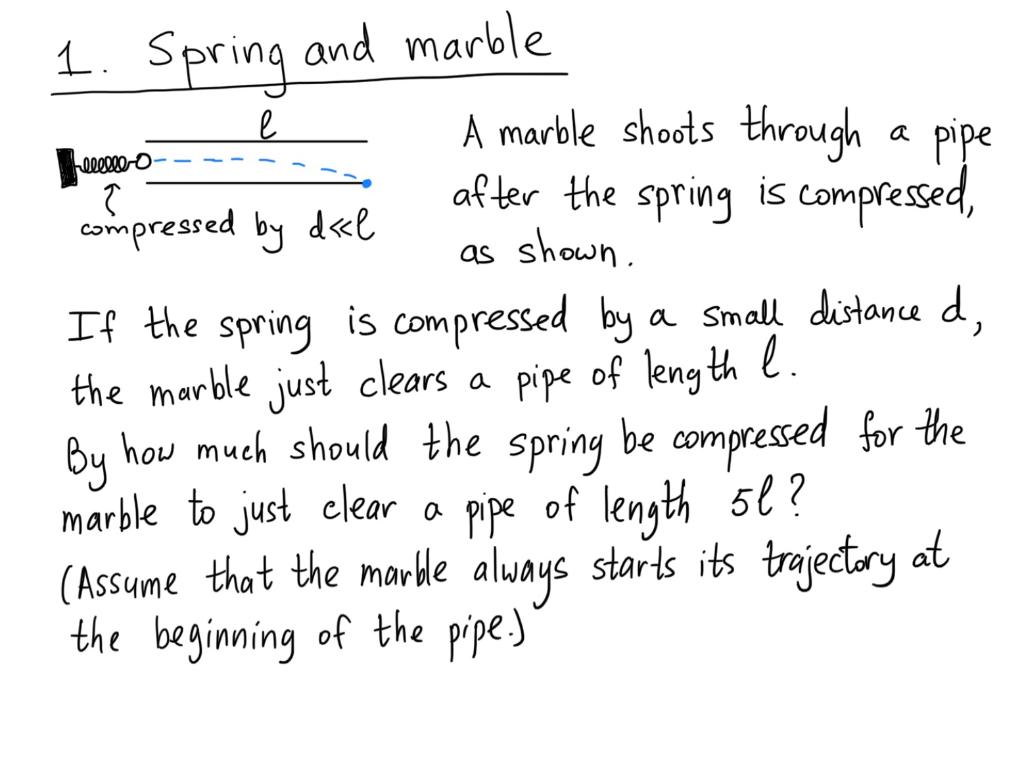 1. Spring and marble
l
compressed by d≪l
A marble shoots through a pipe
after the spring is compressed,
as shown.
If the spring is compressed by a small distance d,
the marble just clears a pipe of length l.
By how much should the spring be compressed for the
marble to just clear a pipe of length 5l?
(Assume that the marble always starts its trajectory at
the beginning of the pipe.)